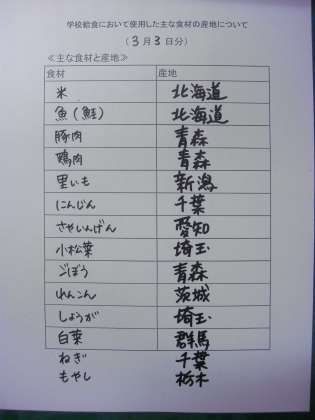 学校給食において使用した主な食材の産地について
(3月3日分)
≪主な食材と産地≫
食材 産地
米 北海道
魚(鮭) 北海道
豚肉 青森
鶏肉 青森
里いも 新潟
にんじん 千葉
さやいんげん 愛知
小松菜 埼玉
ごぼう 青森
れんこん 茨城
しょうが 埼玉
白菜 群馬
ねぎ 千葉
もやし 栃木